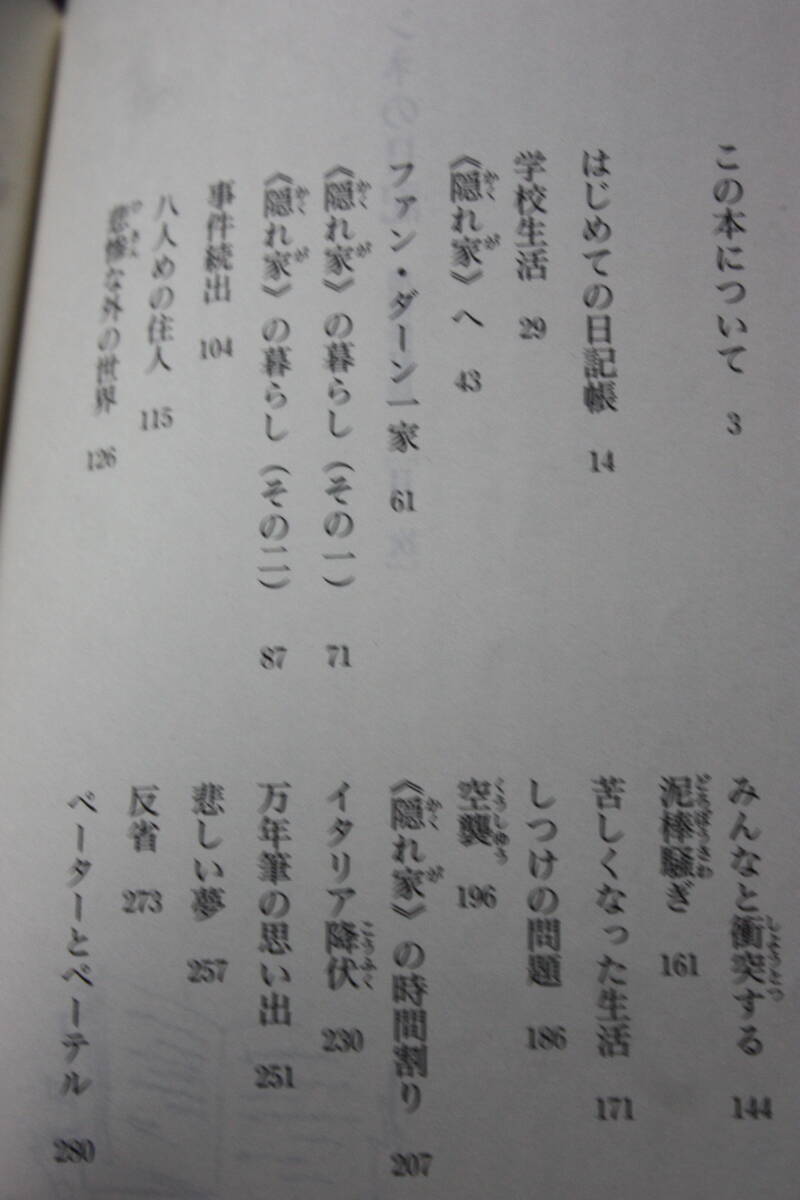 この本について 3
はじめての日記帳 14
学校生活 29
《隠れ家》へ 43
ファン・ダーン一家 61
《隠れ家》の暮らし（その一） 71
《隠れ家》の暮らし（その二） 87
事件続出 104
八人めの住人 115
悲惨な外の世界 126
みんなと衝突する 144
泥棒騒ぎ 161
苦しくなった生活 171
しつけの問題 186
空襲 196
《隠れ家》の時間割り 207
イタリア降伏 230
万年筆の思い出 251
悲しい夢 257
反省 273
ペーターとペーテル 280